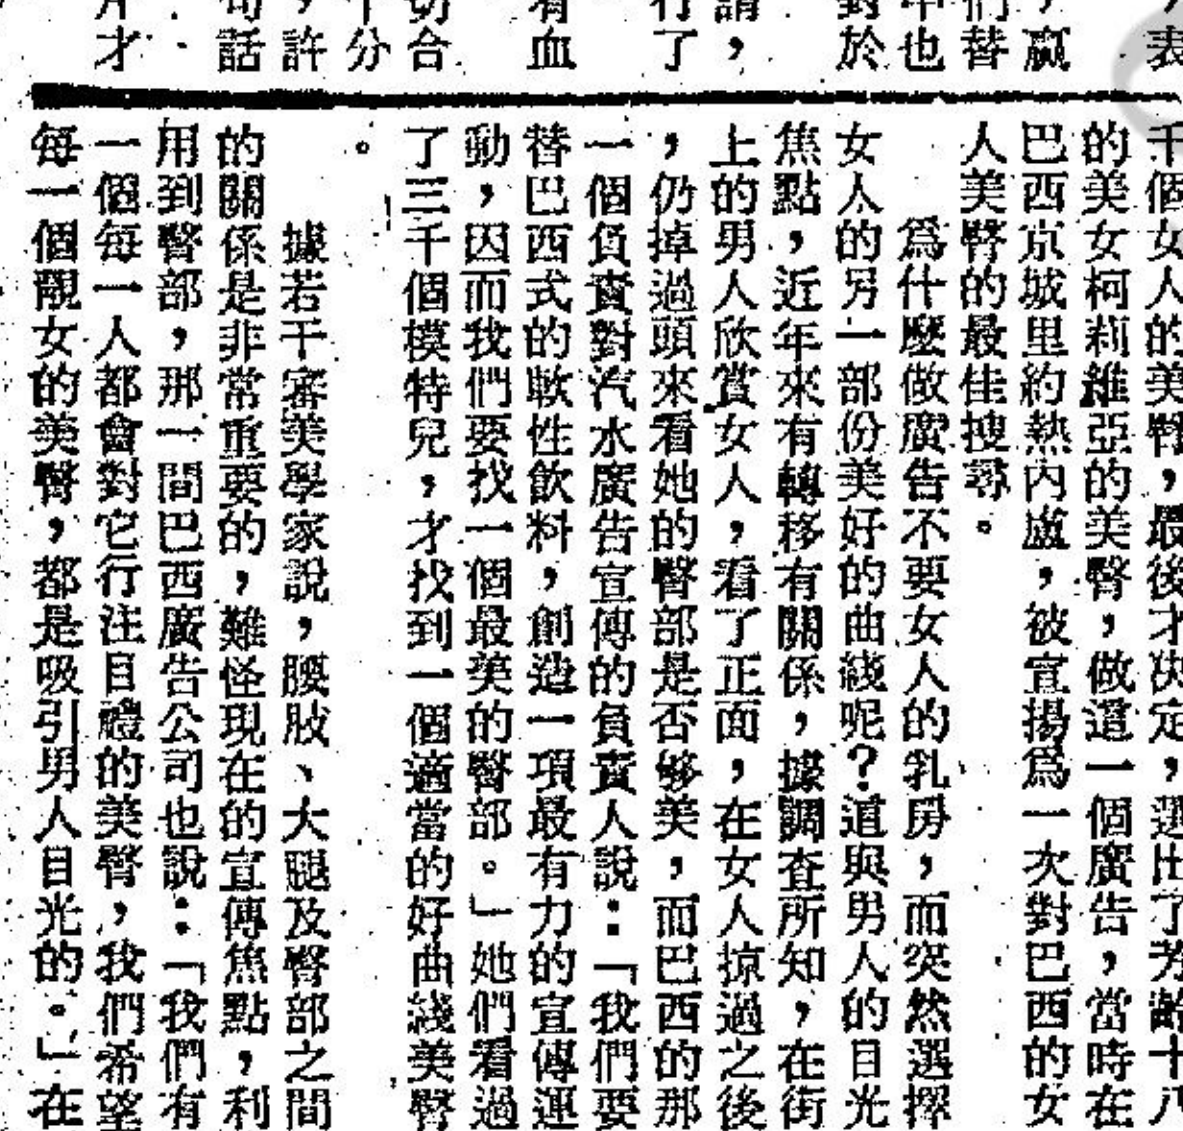 ，表
贏
們替
中也
對於
請，
行了
有血
切合
十分
，許
句話
才
千個女人的美臀，最後才决定，選出了芳齡十八
的美女柯莉維亞的美臀，做這一個廣告，當時在
巴西京城里約熱內盧，被宣揚爲一次對巴西的女
人美臀的最佳搜尋。
爲什麼做廣告不要女人的乳房，而突然選擇
女人的另一部份美好的曲綫呢？這與男人的目光
焦點，近年來有轉移有關係，據調查所知，在街
上的男人欣賞女人，看了正面，在女人掠過之後
，仍掉過頭來看她的臀部是否够美，而巴西的那
一個負責對汽水廣告宣傳的負責人說：「我們要
替巴西式的軟性飲料，創造一項最有力的宣傳運
動，因而我們要找一個最美的臀部。」她們看過
了三千個模特兒，才找到一個適當的好曲綫美臀
。
據若干審美學家說，腰肢、大腿及臀部之間
的關係是非常重要的，難怪現在的宣傳焦點，利
用到臀部，那一間巴西廣告公司也說：「我們有
一個每一人都會對它行注目禮的美臀，我們希望
每一個靚女的美臀，都是吸引男人目光的。」在